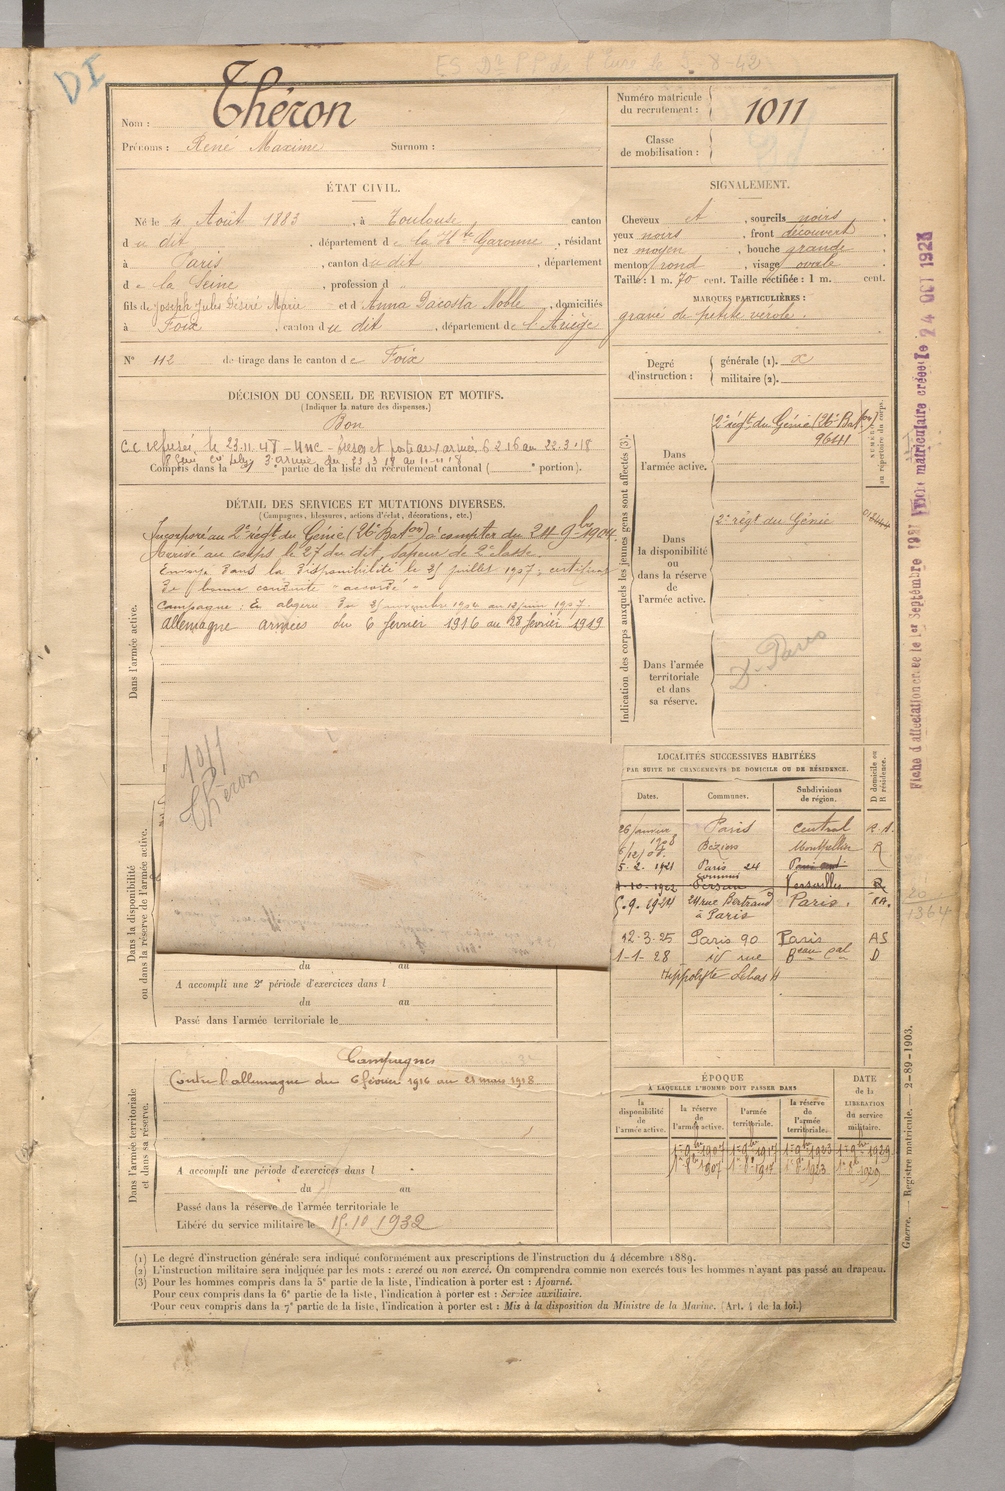 DI
Nom : Théron
Prénoms : René Maxime Surnom :
Numéro matricule du recrutement : 1011
Classe de mobilisation :
ÉTAT CIVIL.
Né le 4 Août 1883, à Toulouse canton
du dit, département de la Hte Garonne, résidant
à Paris, canton du dit, département
de la Seine, profession d
fils de Joseph Jules Désiré Marie et d'Anna Dacosta Noble, domiciliés
à Foix, canton du dit, département de l'Ariège
N° 112 de tirage dans le canton de Foix
SIGNALEMENT.
Cheveux, sourcils noirs,
yeux noirs, front découvert,
nez moyen, bouche grande
menton rond, visage ovale
Taille : 1 m. 70 cent. Taille rectifiée : 1 m. cent.
MARQUES PARTICULIÈRES :
gravé de petite vérole.
Degré d'instruction : générale (1).
militaire (2).
DÉCISION DU CONSEIL DE REVISION ET MOTIFS.
(Indiquer la nature des dispenses.)
Bon
Compris dans la partie de la liste du recrutement cantonal ( portion).
DÉTAIL DES SERVICES ET MUTATIONS DIVERSES.
(Campagnes, blessures, actions d'éclat, décorations, etc.)
Dans l'armée active.
Incorporé au 2e régt du Génie (26e Baton) à compter du 24 9bre 1904.
Arrivé au corps le 27 du dit, sapeur de 2e classe.
Envoyé dans la disponibilité le juillet 1907; certificat
de bonne conduite "accordé"
Campagne : En algérie Du novembre 1904 au juin 1907.
Allemagne armées du 6 février 1916 au 28 février 1919
Indication des corps auxquels les jeunes gens sont affectés (3).
Dans l'armée active.
2e régt du Génie (26e Baton)
9641
NUMÉRO au répertoire du corps.
Dans la disponibilité ou dans la réserve de l'armée active.
2e régt du Génie
Dans l'armée territoriale et dans sa réserve.
D. Paris
1011
Théron
LOCALITÉS SUCCESSIVES HABITÉES
PAR SUITE DE CHANGEMENTS DE DOMICILE OU DE RÉSIDENCE.
D domicile ou R résidence.
Dates. Communes. Subdivisions de région.
26 janvier 1908 Paris Central
6/12/08. Béziers Montpellier R
5-2-1921 Paris 24
1-10-1922 Versailles R
5-9-1924 24 rue Bertrand à Paris Paris.
12-3-25 Paris 90 Paris AS
1-1-28 id rue Hippolyte Lebas D
Dans la disponibilité ou dans la réserve de l'armée active.
du au
A accompli une 2e période d'exercices dans l
du au
Passé dans l'armée territoriale le
Dans l'armée territoriale et dans sa réserve.
Campagnes
Contre l'allemagne du 6 février 1916 au 21 mars 1918
A accompli une période d'exercices dans l
du au
Passé dans la réserve de l'armée territoriale le
Libéré du service militaire le 15.10.1932
ÉPOQUE
À LAQUELLE L'HOMME DOIT PASSER DANS
DATE de la LIBÉRATION du service militaire.
la disponibilité de l'armée active. la réserve de l'armée active. l'armée territoriale. la réserve de l'armée territoriale.
1er 9bre 1907 1er 9bre 1917 1er 9bre 1923 1er 9bre 1929
1er 8bre 1907 1er 8bre 1917 1er 8bre 1923 1er 8bre 1929
(1) Le degré d'instruction générale sera indiqué conformément aux prescriptions de l'instruction du 4 décembre 1889.
(2) L'instruction militaire sera indiquée par les mots : exercé ou non exercé. On comprendra comme non exercés tous les hommes n'ayant pas passé au drapeau.
(3) Pour les hommes compris dans la 5e partie de la liste, l'indication à porter est : Ajourné.
Pour ceux compris dans la 6e partie de la liste, l'indication à porter est : Service auxiliaire.
Pour ceux compris dans la 7e partie de la liste, l'indication à porter est : Mis à la disposition du Ministre de la Marine. (Art. 4 de la loi.)
Fiche d'affectation créée le 1er Septembre 1927
Fiche matriculaire créée le 24 OCT 1928
1364
Guerre. — Registre matricule. — 2-89-1903.